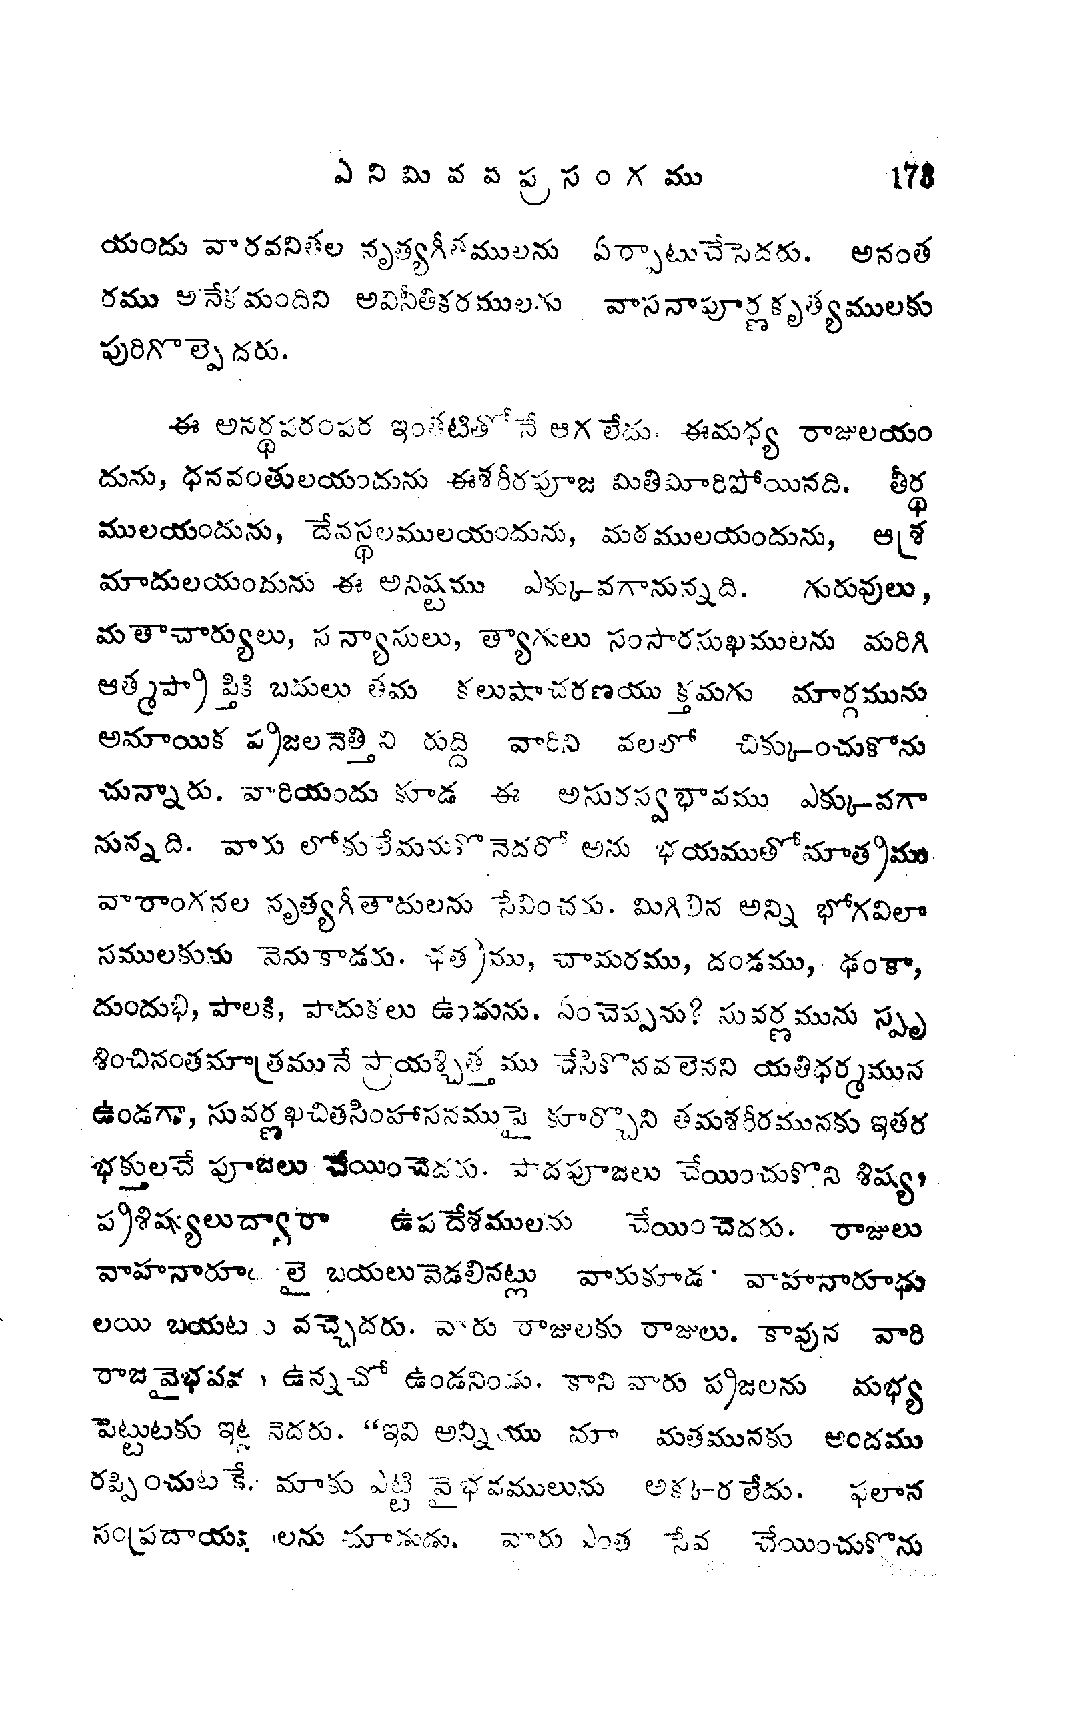 ఏనిమివవప్రసంగము 173
యందు వారవనితల నృత్యగీతములను ఏర్పాటుచేసెదరు. అనంత
రము అనేకమందిని అవినీతికరములగు వాసనాపూర్ణకృత్యములకు
పురిగొల్పెదరు.
ఈ అనర్థపరంపర ఇంతటితోనే ఆగలేదు. ఈమధ్య రాజులయం
దును, ధనవంతులయందును ఈశరీరపూజ మితిమీరిపోయినది. తీర్థ
ములయందును, దేవస్థలములయందును, మఠములయందును, ఆశ్ర
మాదులయందును ఈ అనిష్టము ఎక్కువగానున్నది. గురువులు,
మతాచార్యులు, సన్యాసులు, త్యాగులు సంసారసుఖములను మరిగి
ఆత్మప్రాప్తికి బదులు తమ కలుషాచరణయుక్తమగు మార్గమును
అమాయిక ప్రజలనెత్తిని రుద్ది వారిని వలలో చిక్కించుకొను
చున్నారు. వారియందు కూడ ఈ అసురస్వభావము ఎక్కువగా
నున్నది. వారు లోకులేమనుకొనెదరో అను భయముతోమాత్రము
వారాంగనల నృత్యగీతాదులను సేవించరు. మిగిలిన అన్ని భోగవిలా
సములకును వెనుకాడరు. ఛత్రము, చామరము, దండము, ఢంకా,
దుందుభి, పాలకి, పాదుకలు ఉండును. ఏంచెప్పను? సువర్ణమును స్పృ
శించినంతమాత్రమునే ప్రాయశ్చిత్తము చేసికొనవలెనని యతిధర్మమున
ఉండగా, సువర్ణఖచితసింహాసనముపై కూర్చొని తమశరీరమునకు ఇతర
భక్తులచే పూజలు చేయించెదరు. పాదపూజలు చేయించుకొని శిష్య,
ప్రశిష్యులుద్వారా ఉపదేశములను చేయించెదరు. రాజులు
వాహనారూఢులై బయలువెడలినట్లు వారుకూడ వాహనారూఢు
లయి బయటకు వచ్చెదరు. వారు రాజులకు రాజులు. కావున వారి
రాజవైభవము ఉన్నచో ఉండనిండు. కాని వారు ప్రజలను మభ్య
పెట్టుటకు ఇట్లనెదరు. “ఇవి అన్నియు మా మతమునకు అందము
రప్పించుటకే. మాకు ఎట్టి వైభవములును అక్కరలేదు. ఫలాన
సంప్రదాయకులను చూడుడు. వారు ఎంత సేవ చేయించుకొను